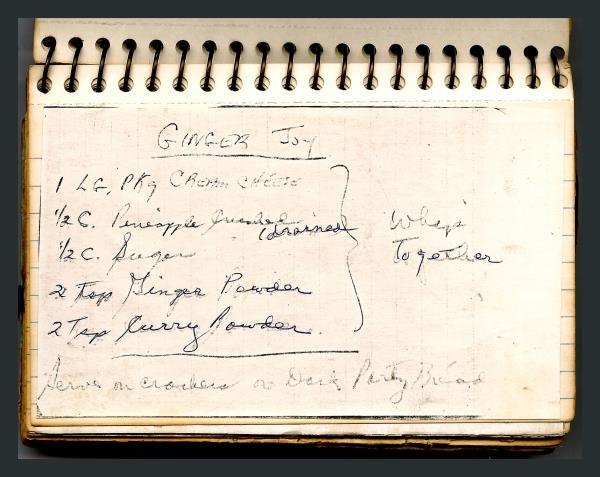 GINGER Joy
1 LG, PKg CREAM CHEESE
1/2 C. Pineapple Crushed (drained
1/2 C. Sugar
2 Tsp Ginger Powder
2 Tsp Curry Powder.
Whip
Together
Serve on crackers or Dark Party Bread